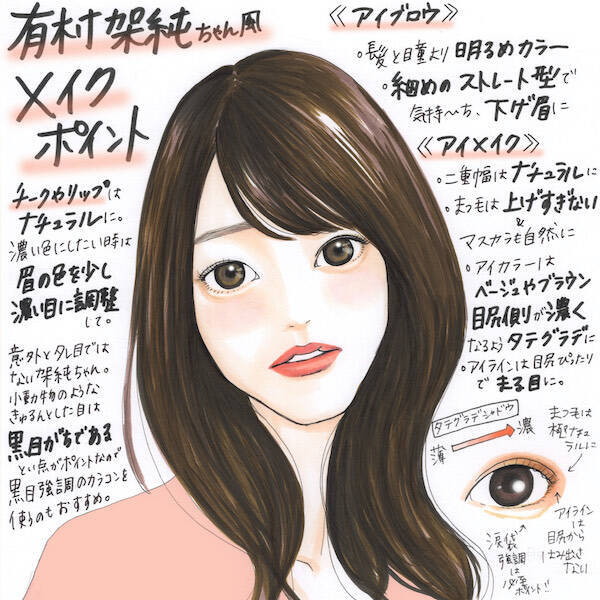 有村架純ちゃん風
メイク
ポイント
チークやリップは
ナチュラルに。
濃い色にしたい時は
眉の色を少し
濃い目に調整
して。
意外とタレ目では
ない架純ちゃん。
小動物のような
きゅるんとした目は
黒目がちである
という点がポイントなので
黒目強調のカラコンを
使うのもおすすめ。
《アイブロウ》
・髪と瞳より明るめカラー
・細めのストレート型で
気持〜ち、下げ眉に
《アイメイク》
・二重幅はナチュラルに
・まつ毛は上げすぎない
&
マスカラも自然に
・アイカラーは
ベージュやブラウン
目尻側が濃く
なるようタテグラデに
・アイラインは目尻ぴったり
で まる目に。
タテグラデシャドウ
薄 濃
まつ毛は
極ナチュ
ラルに
アイライン
は
目尻から
はみ出さ
ない
涙袋
強調は
必須
ポイント!!